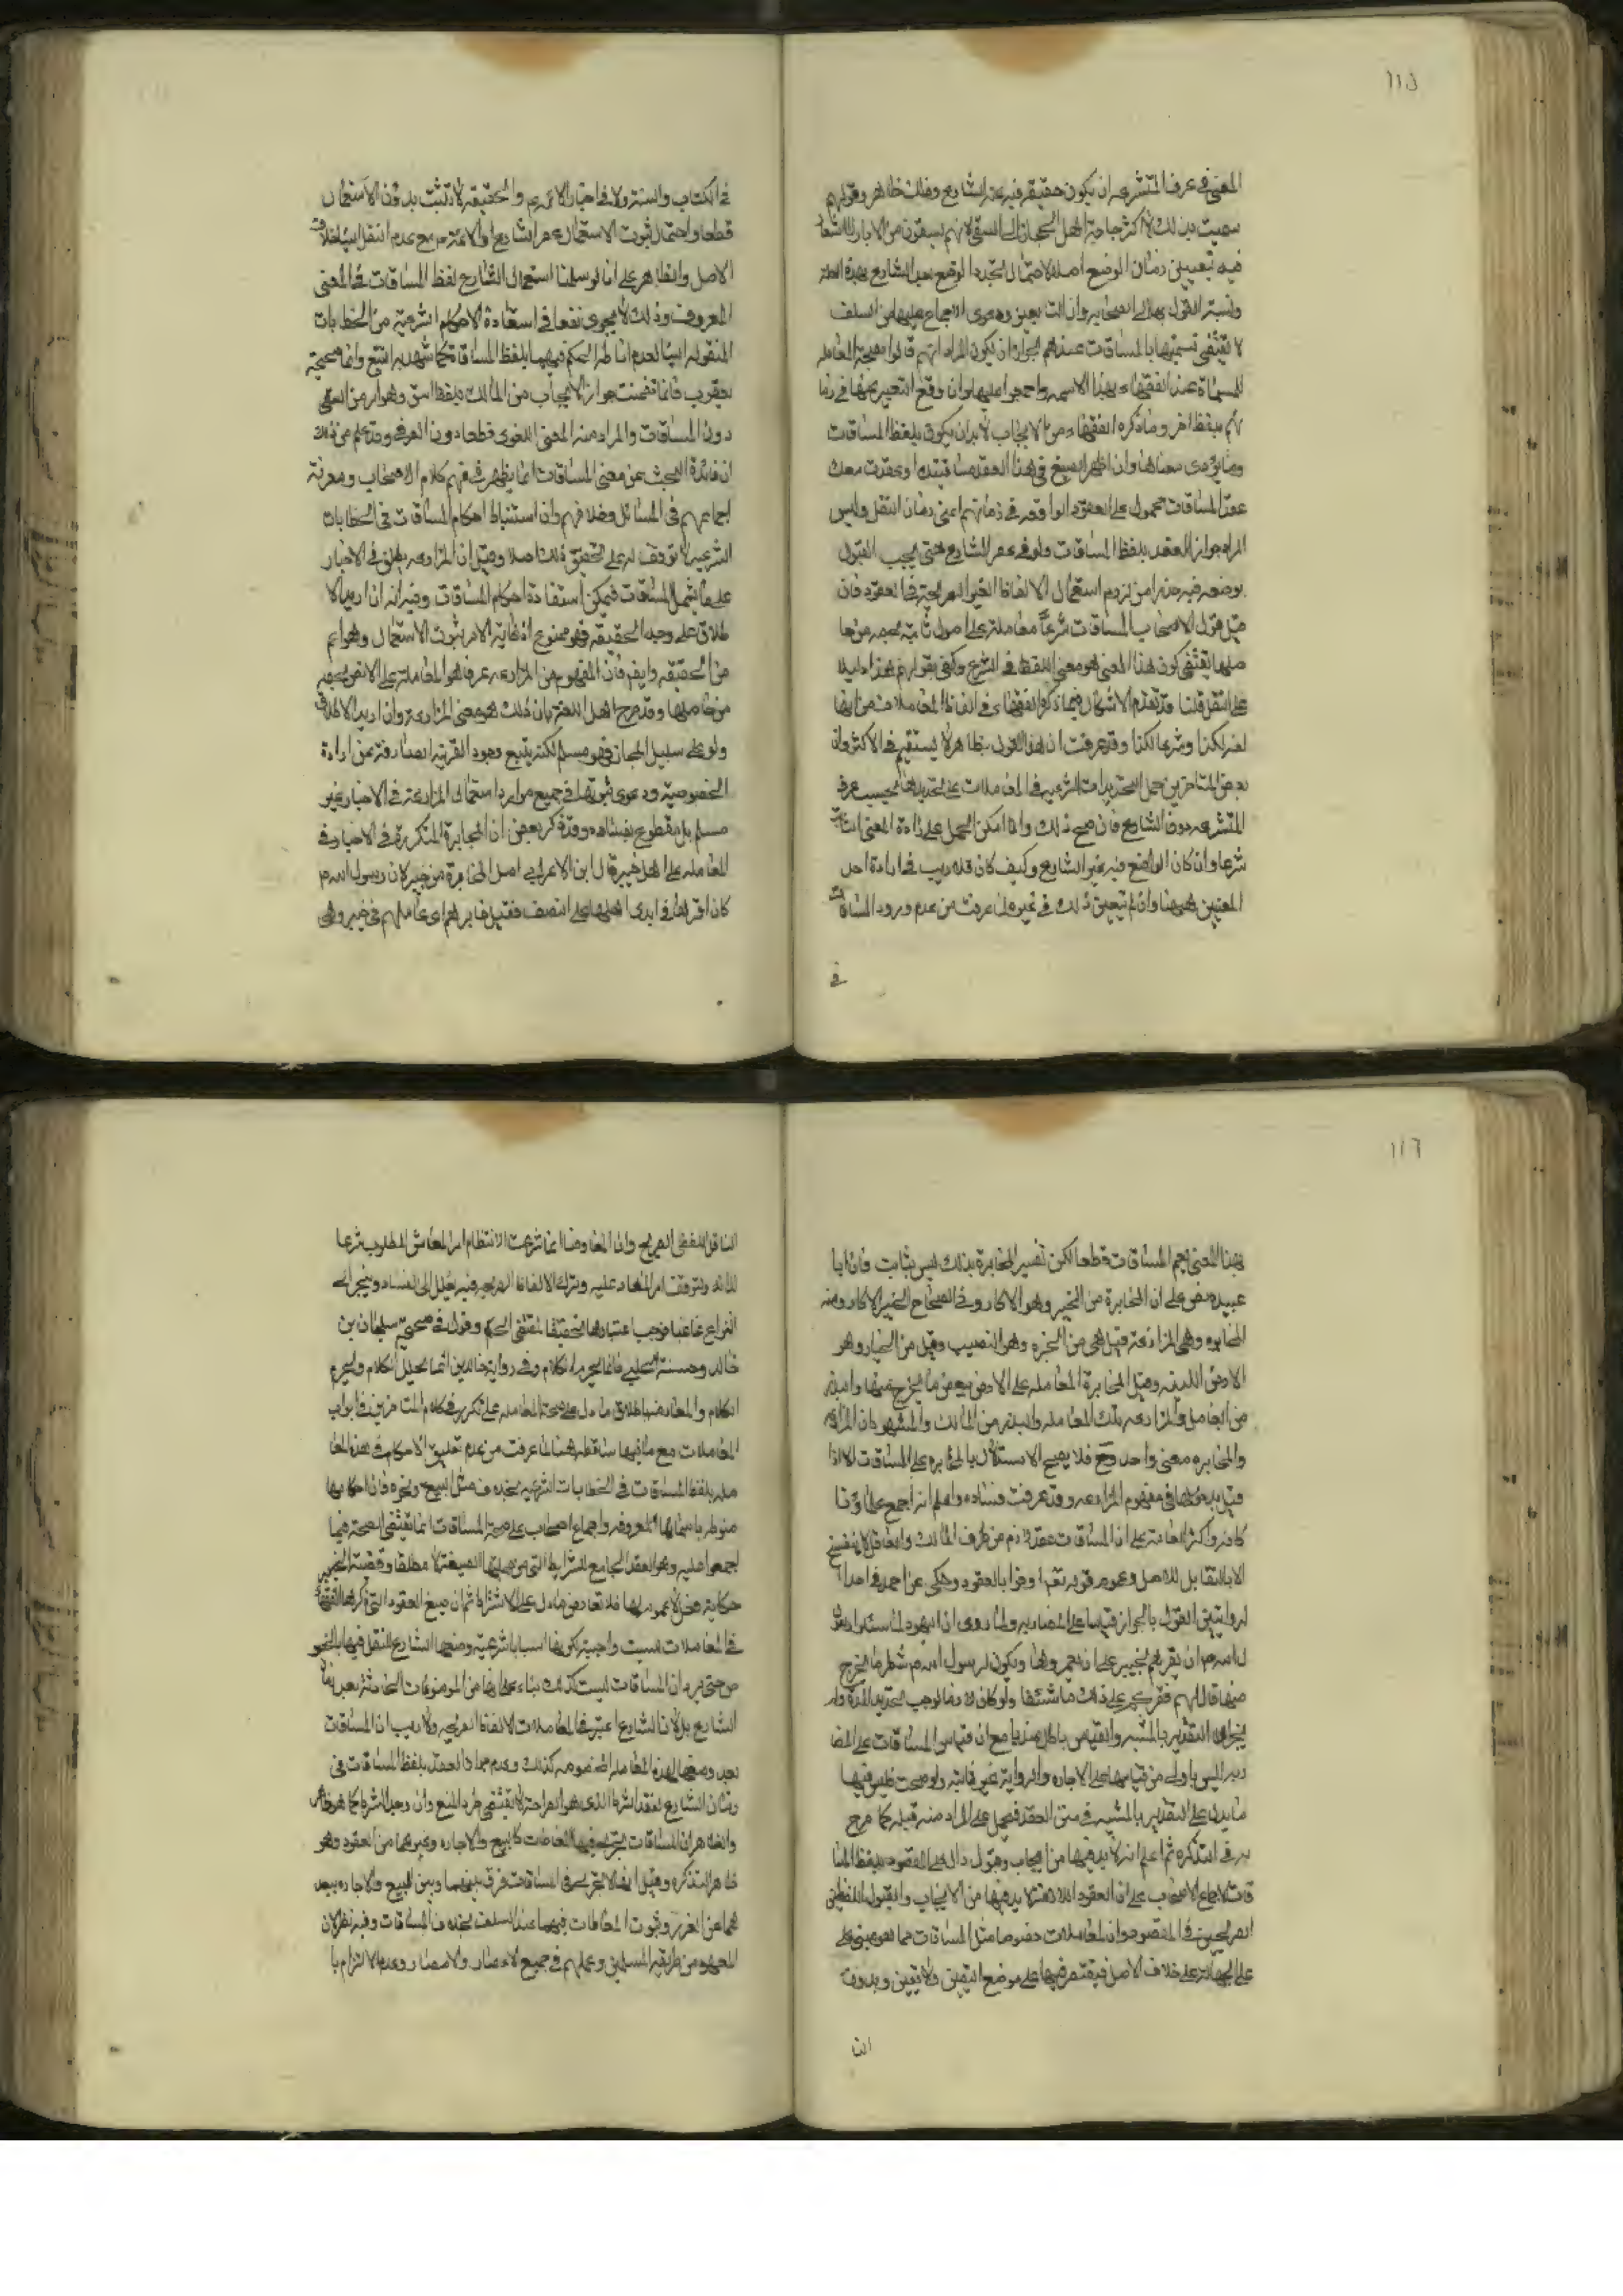 ١١٥
المعنى في عرف المتشرعه ان يكون حقيقه فيه عند الشارع وذلك ظاهر وقولهم
سميت بذلك لاكثر حاجة اهل الحجاز الى السقي لانهم يسقون من الابار لا اشعار
فيه بتعيين زمان الوضع اصلا لاحتمال تجدد الوضع بعد الشارع بهذه العلة
ونسبة القول بها الى الصحابه والتابعين ودعوى الاجماع عليها من السلف
لا يقتضى تسميتها بالمساقات عندهم لجواز ان يكون المراد انهم قالوا بصحة المعامله
المسماة عند الفقهاء بهذا الاسم واجمعوا عليها وان وقع التعبير عنها في زما
نهم بلفظ اخر وما ذكره الفقهاء من ان الايجاب لابد ان يكون بلفظ المساقات
وما يؤدى معناها وان اظهر الصيغ في هذا العقد ساقيتك او عقدت معك
عقد المساقات محمول على العقود الواقعه في زمانهم اعنى زمان النقل وليس
المراد جواز العقد بلفظ المساقات ولو في عصر الشارع حتى يجب القول
بوضعه فيه حذرا من لزوم استعمال الالفاظ الغير الصريحة في العقود فان
قيل قول الاصحاب المساقات شرعاً معاملة على اصول ثابتة بحصه من حا
صلها يقتضى كون هذا المعنى هو معنى اللفظ في الشرع وكفى بقولهم هذا دليلا
على النقل قلنا قد تقدم الاشكال فيما ذكره الفقهاء في الفاظ المعاملات من انها
لغة لكذا وشرعا لكذا وقد عرفت ان هذا القول بظاهره لا يستقيم في الاكثر وان
بعض المتاخرين حمل التحديدات الشرعيه في المعاملات على تحديدها بحسب عرف
المتشرعه دون الشارع فان صح ذلك والا امكن الحمل على ارادة المعنى الثابت
شرعا وان كان الواضع فيه غير الشارع وكيف كان فلا ريب في ارادة احد
المعنيين ههنا وان لم يتعين ذلك في غيره لما عرفت من عدم ورود المساقات
في
في الكتاب والسنة ولا في اخبار الائمهم والحقيقه لا تثبت بدون الاستعمال
قطعا واحتمال ثبوت الاستعمال في عصر الشارع او الائمهم مع عدم النقل الينا خلاف
الاصل والظاهر على انا لو سلمنا استعمال الشارع لفظ المساقات في المعنى
المعروف فذلك لا يجدى نفعا في استفادة الاحكام الشرعيه من الخطابات
المنقوله الينا لعدم اناطه الحكم فيها بلفظ المساقات كما شهد به التتبع واما صحيحة
يعقوب فانما تضمنت جواز الايجاب من المالك بلفظ اسق وهو امر من السقى
دون المساقات والمراد منه المعنى اللغوى قطعا دون العرفى وقد علم من ذلك
ان فائدة البحث عن معنى المساقات انما يظهر في فهم كلام الاصحاب ومعرفة
اجماعهم في المسائل وخلافهم وان استنباط احكام المساقات في الخطابات
الشرعيه لا توقف له على تحقيق ذلك اصلا وقيل ان المزارعه يطلق في الاخبار
على ما يشمل المساقات فيمكن استفادة احكام المساقات وفيه انه ان اريد الا
طلاق على وجه الحقيقه فهو ممنوع اذ غاية الامر ثبوت الاستعمال وهو اعم
من الحقيقه وايضا فان المفهوم من المزارعه عرفا هو المعاملة على الارض بحصه
من حاصلها وقد صرح اهل اللغة بان ذلك هو معنى المزارعة وان اريد الاطلاق
ولو على سبيل المجاز فهو مسلم لكنه يتبع وجود القرينه الصارفة عن ارادة
الخصوصية ودعوى ثبوتها في جميع موارد استعمال المزارعة في الاخبار غير
مسلم بل مقطوع بفساده وقد ذكر بعض ان المخابرة المتكررة في الاخبار في
المعامله على اهل خيبر قال ابن الاعرابي اصل المخابرة من خيبر لان رسول الله ص
كان اقرها في ايدى اهلها على النصف فقيل خابرهم اى عاملهم في خيبر وهى
١١٦
بهذا المعنى يعم المساقات قطعا لكن تفسير المخابرة بذلك ليس بثابت فان ابا
عبيده نص على ان المخابرة من الخبير وهو الاكار وفي الصحاح الخبير الاكار ومنه
المخابره وهى المزارعة وقيل هى من الخبره وهى النصيب وقيل من الخبار وهو
الارض اللينه وقيل المخابرة المعامله على الارض ببعض ما يخرج منها والبذر
من العامل والمزارعه تلك المعامله والبذر من المالك والمشهور ان المزارعه
والمخابره معنى واحد وح فلا يصح الاستدلال بالمخابره على المساقات الا اذا
قيل بدخولها في مفهوم المزارعه وقد عرفت فساده واعلم انه اجمع علماؤنا
كافة واكثر العامة على ان المساقات عقد لازم من طرف المالك والعامل لا ينفسخ
الا بالتقابل للاصل وعموم قوله تعه اوفوا بالعقود وحكى عن احمد في احدى
الروايتين القول بالجواز قياسا على المضاربه ولما روى ان اليهود لما سئلوا رسو
ل الله ص ان يقرهم بخيبر على ان يعمروها ويكون لرسول الله ص شطر ما يخرج
منها قال لهم نقركم على ذلك ما شئنا ولو كان لازما لوجب تحديد المدة ولم
يجز التقدير بالمشيه والقياس باطل عندنا مع ان قياس المساقات على المضا
ربه ليس باولى من قياسها على الاجاره والرواية غير ثابته ولو صحت فليس فيها
ما يدل على التقدير بالمشيه في متن العقد فيحمل على المراد منه قبله كما صرح
به في التذكره ثم اعلم انه لابد فيها من ايجاب وقبول دال على المقصود بلفظ المسا
قات لاجماع الاصحاب على ان العقود اللازمة لا بد فيها من الايجاب والقبول اللفظين
الصريحين في المقصود وان المعاملات خصوصا مثل المساقات مما هو مبنى على
على الجهالة على خلاف الاصل فيقتصر فيها على موضع اليقين ولا يقين وبدون
النا
الناقل اللفظى الصريح وان المعاوضا انما شرعت لانتظام امر المعاش المطلوب شرعا
لذاته ولتوقف امر المعاد عليه وترك الالفاظ الصريحه فيه يخل الى الفساد وينجر الى
النزاع غالبا فوجب اعتبارها تحقيقا لمقتضى الحكم وقوله في صحيحة سليمان بن
خالد وحسنة الحلبى فانما يحرم الكلام وفي رواية خالد بن انما يحلل الكلام ويحرم
الكلام والمعارضه باطلاق ما دل على صحة المعامله على تكرره في كلام المتاخرين في ابواب
المعاملات مع ما فيها ساقطه هنا لما عرفت من عدم تعليق الاحكام في هذه المعا
مله بلفظ المساقات في الخطابات الشرعيه بخلاف مثل البيع ونحوه فان احكامها
منوطه باسمائها المعروفه واجماع اصحاب على صحة المساقات انما يقتضى الصحة فيما
اجمعوا عليه وهو العقد الجامع للشرايط التى من جملتها الصيغة لا مطلقا وقضية خيبر
حكاية فعل لا عموم لها فلا تعارض ما دل على الاشتراط ثم ان صيغ العقود التى ذكرها الفقها
في المعاملات ليست واجبة لكونها اسبابا شرعية وضعها الشارع للنقل فيها بالخصو
ص حتى يرد ان المساقات ليست كذلك بناء على انها من الموضوعات الحادثة بعد زما
الشارع بل لان الشارع اعتبر في المعاملات الالفاظ الصريحه ولا ريب ان المساقات
بعد وضعها لهذه المعامله المخصوصه كذلك وعدم جواز العقد بلفظ المساقات في
زمان الشارع لفقد الشرط الذى هو الصراحة لا يقتضى طرد المنع وان وجد الشرط كما هو ظاهر
والظاهر ان المساقات يجرى فيها المعاطات كالبيع والاجاره وغيرهما من العقود وهو
ظاهر التذكره وقيل انها لا تجرى في المساقات فرق بينها وبين البيع والاجاره ببعد
هما عن الغرر وثبوت المعاطات فيهما عند السلف بخلاف المساقات وفيه نظر لان
المعهود من طريقة المسلمين وعملهم في جميع الاعصار والامصار وعدم الالتزام با